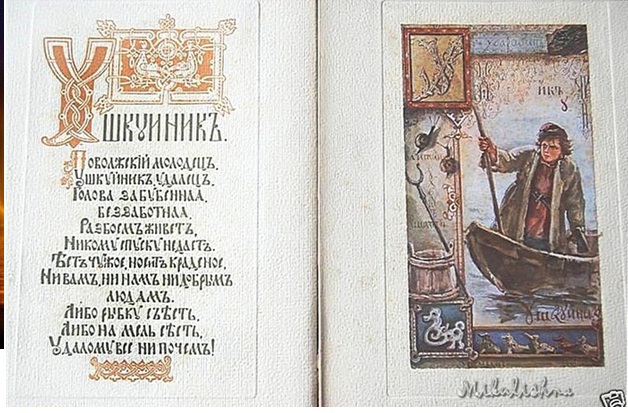 УШКУЙНИКЪ.
Поволжскій молодецъ,
Ушкуйникъ, удалецъ,
Голова забубенная,
беззаботная,
Разбоемъ живетъ,
Никому спуску недастъ.
Ѣстъ чужое, носитъ краденое,
Ни вамъ, ни намъ, ни добрымъ
людямъ.
Либо рыбку съѣстъ,
Либо на мель сѣстъ,
Удалому все ни почемъ!
Mikalishna